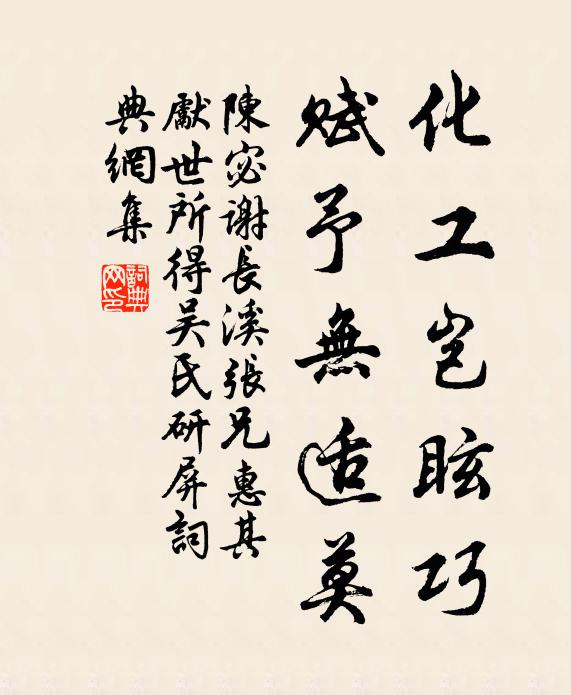 化工豈眩巧
賦予無適莫
陳宓謝長溪張兄惠其
獻世所得吳氏研屏詞
典網集
詞典網印